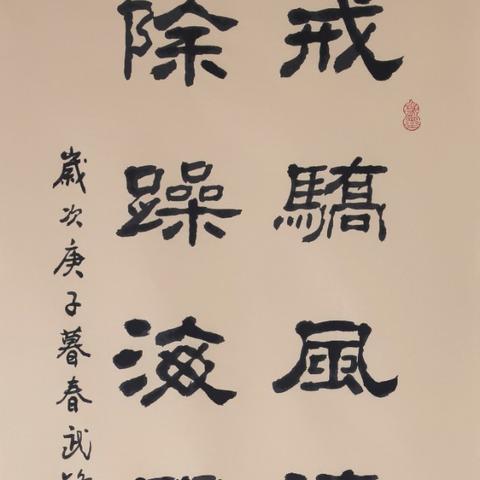 戒驕風
除躁海
歲次庚子暮春武